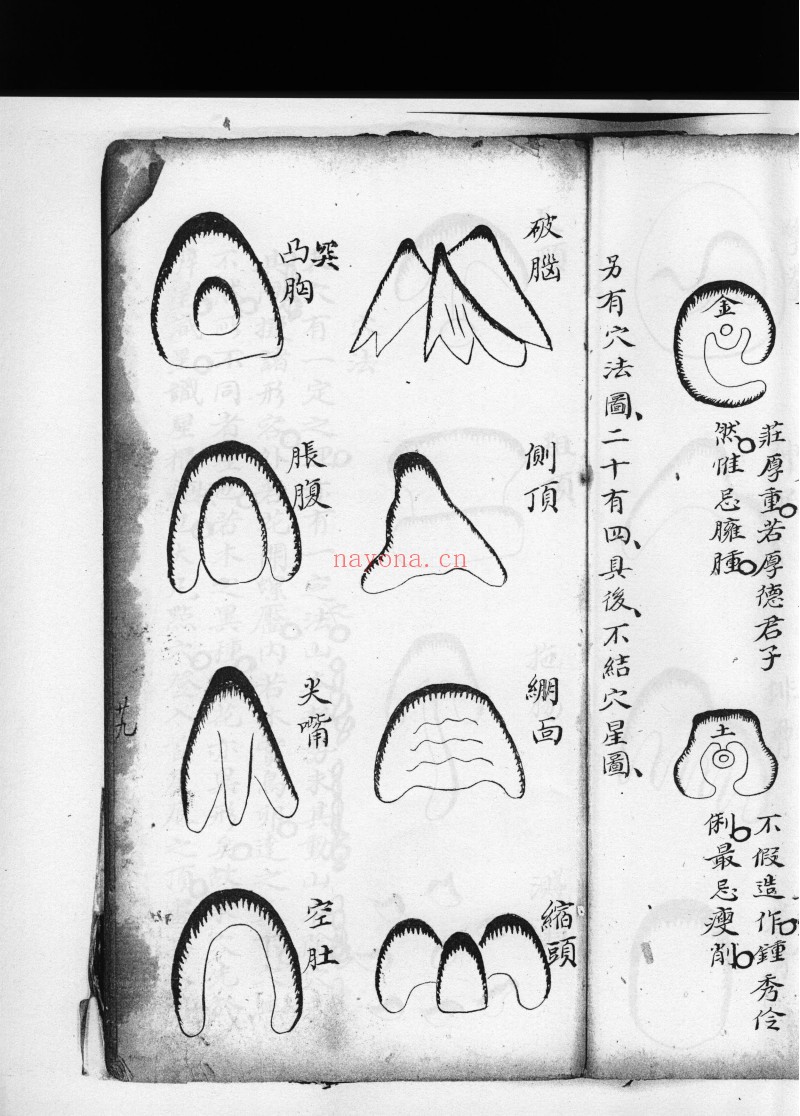 金
莊厚重若厚德君子
然惟忌臃腫
土
不假造作鍾秀伶
俐最忌瘦削
另有穴法圖、二十有四、具後、不結穴星圖、
破腦
側頂
綳面
縮頭
突
凸胸
脹腹
尖嘴
空肚
廿九
nayona.cn